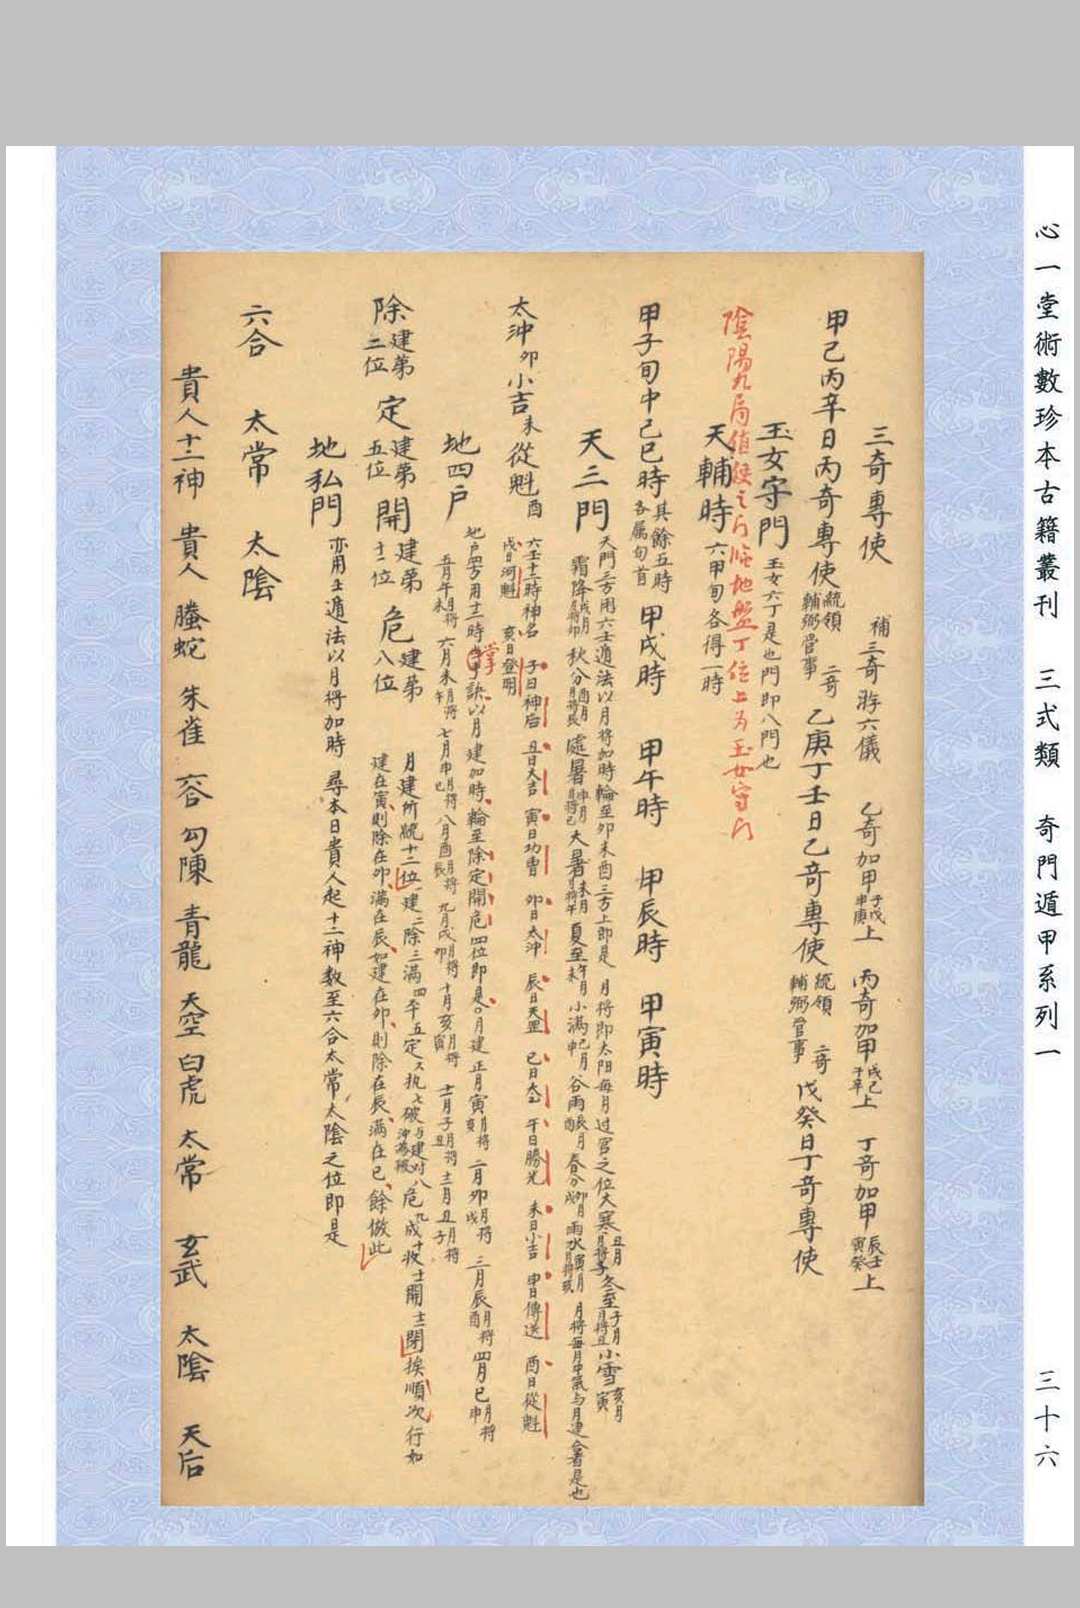 心一堂術數珍本古籍叢刊 三式類 奇門遁甲系列一 三十六
三奇專使 補三奇游六儀 乙奇加甲子戌申庚上 丙奇加甲戌己子辛上 丁奇加甲辰壬寅癸上
甲己丙辛日丙奇專使 統領二奇輔弼管事 乙庚丁壬日乙奇專使 統領二奇輔弼管事 戊癸日丁奇專使
玉女守門 玉女六丁是也門即八門也
陰陽九局值使之门临地盤丁位上为玉女守门
天輔時 六甲旬各得一時
甲子旬中己巳時 其餘五時各属旬首 甲戌時 甲午時 甲辰時 甲寅時
天三門 天門三方用六壬遁法以月将加時輪至卯未酉三方上即是 月将即太阳每月过宮之位大寒丑月月将子 冬至子月月将丑 小雪亥月寅
霜降戌月月将卯 秋分酉月月将辰 處暑申月月将巳 大暑未月月将午 夏至午月未 小滿巳月申 谷雨辰月酉 春分卯月戌 雨水寅月月将亥 月将每月中氣与月建合者是也
太沖卯 小吉未 從魁酉 六壬十二時神名 子日神后 丑日大吉 寅日功曹 卯日太沖 辰日天罡 巳日太乙 午日勝光 未日小吉 申日傳送 酉日從魁
戌日河魁 亥日登明
地四户 地户四方用十二時掌訣以月建加時輪至除定開危四位即是 月建 正月寅月将亥 二月卯月将戌 三月辰月将酉 四月巳月将申
五月午月将未 六月未月将午 七月申月将巳 八月酉月将辰 九月戌月将卯 十月亥月将寅 十一月子月将丑 十二月丑月将子
除建第二位 定建第五位 開建第十一位 危建第八位 月建所統十二位一建二除三滿四平五定六执七破与建对冲為破八危九成十收十一開十二閉挨順次行如
建在寅則除在卯滿在辰如建在卯則除在辰滿在巳餘倣此
地私門 亦用壬遁法以月将加時 尋本日貴人起十二神数至六合太常太陰之位即是
六合 太常 太陰
貴人十二神 貴人 螣蛇 朱雀 六合 勾陳 青龍 天空 白虎 太常 玄武 太陰 天后